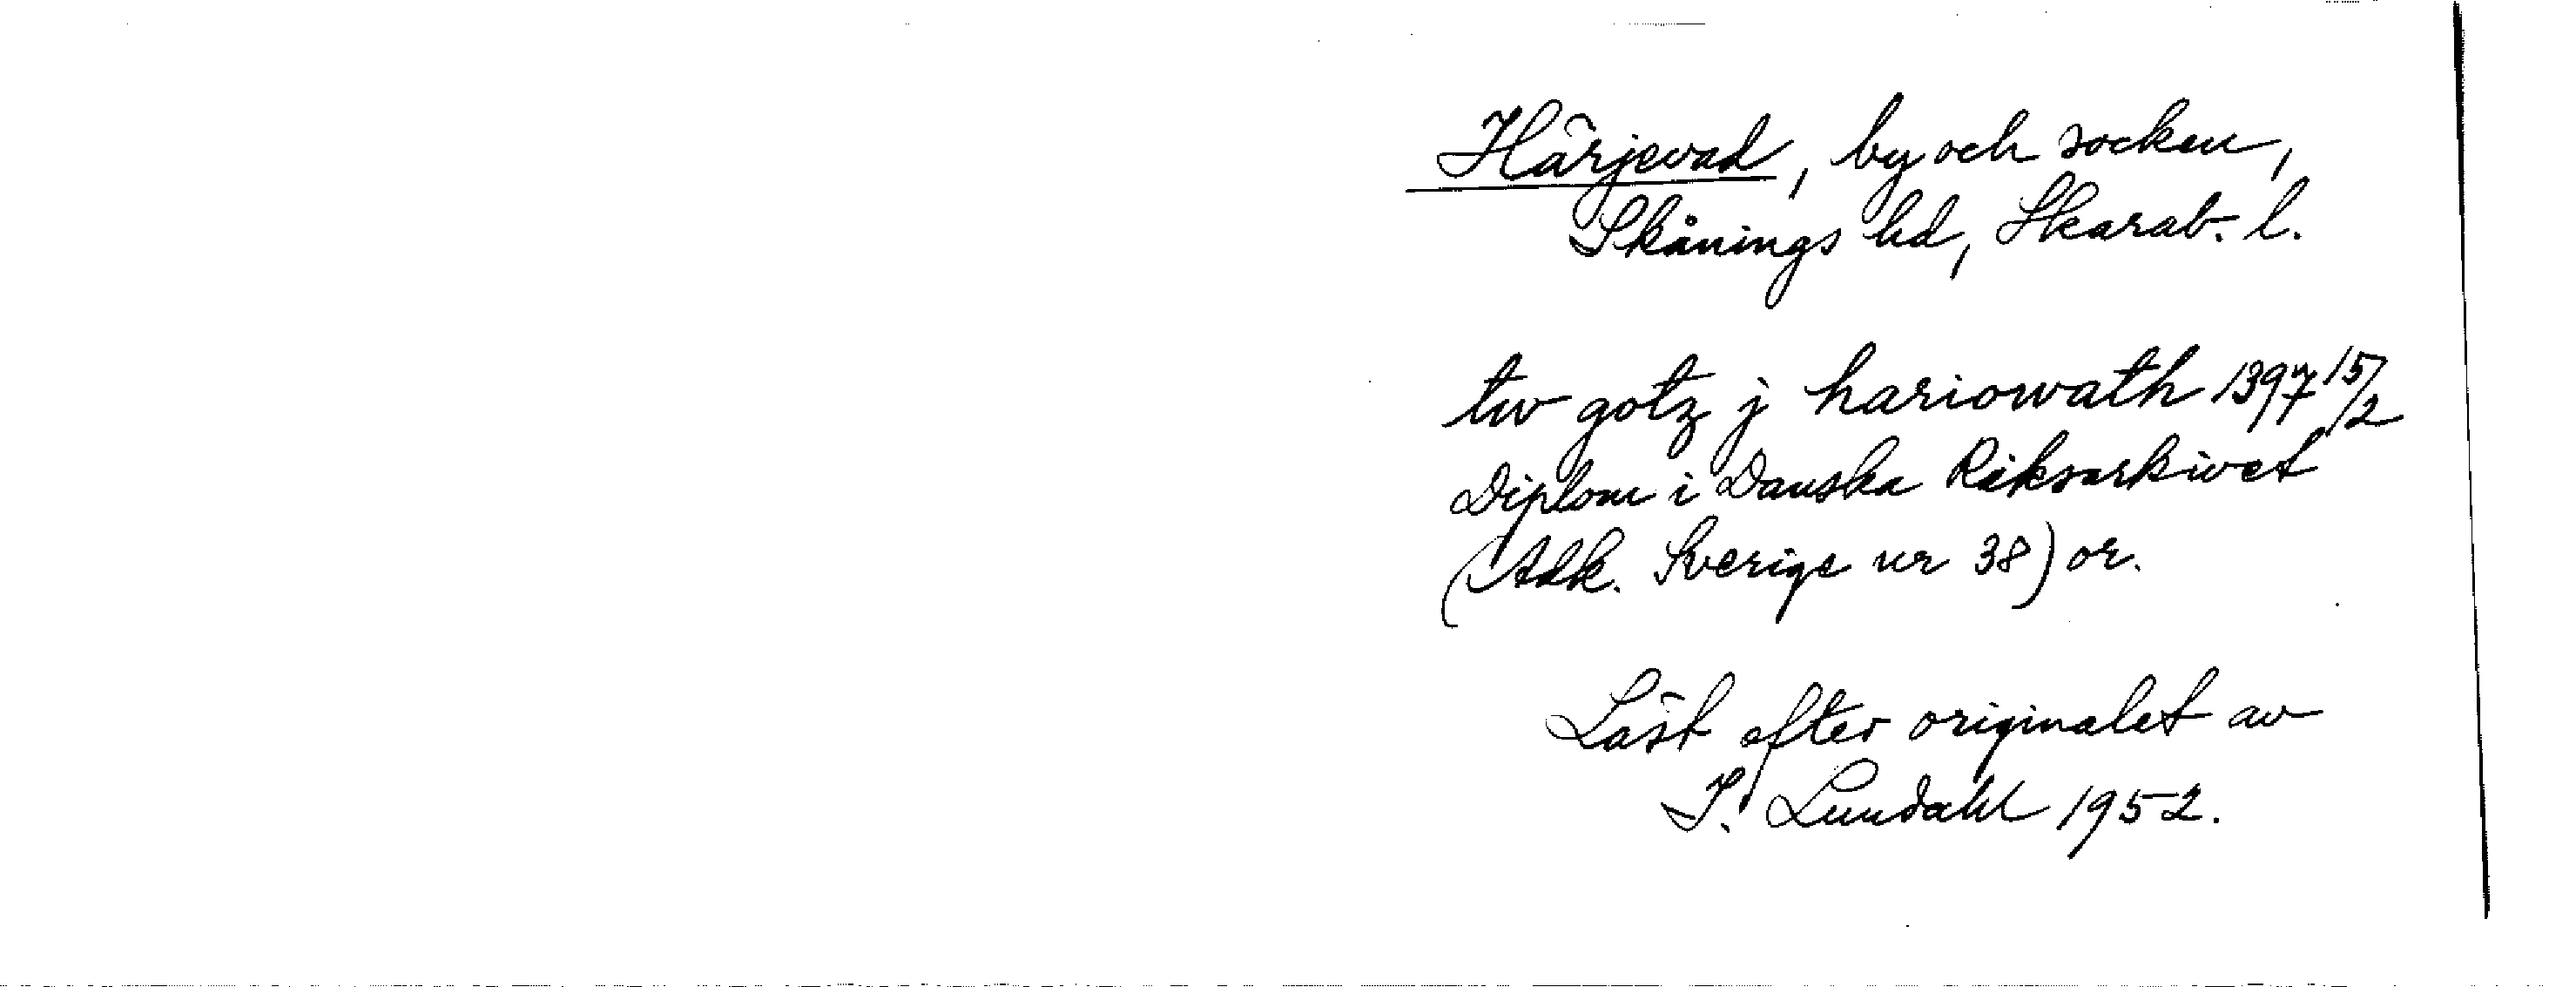 Härjevad, by och socken,
Skånings hd, Skarab. l.
tw gotz j hariowath 1397 15/2
Diplom i Danska Riksarkivet
(Adk. Sverige nr 38) or.
Läst efter originalet av
I. Lundahl 1952.